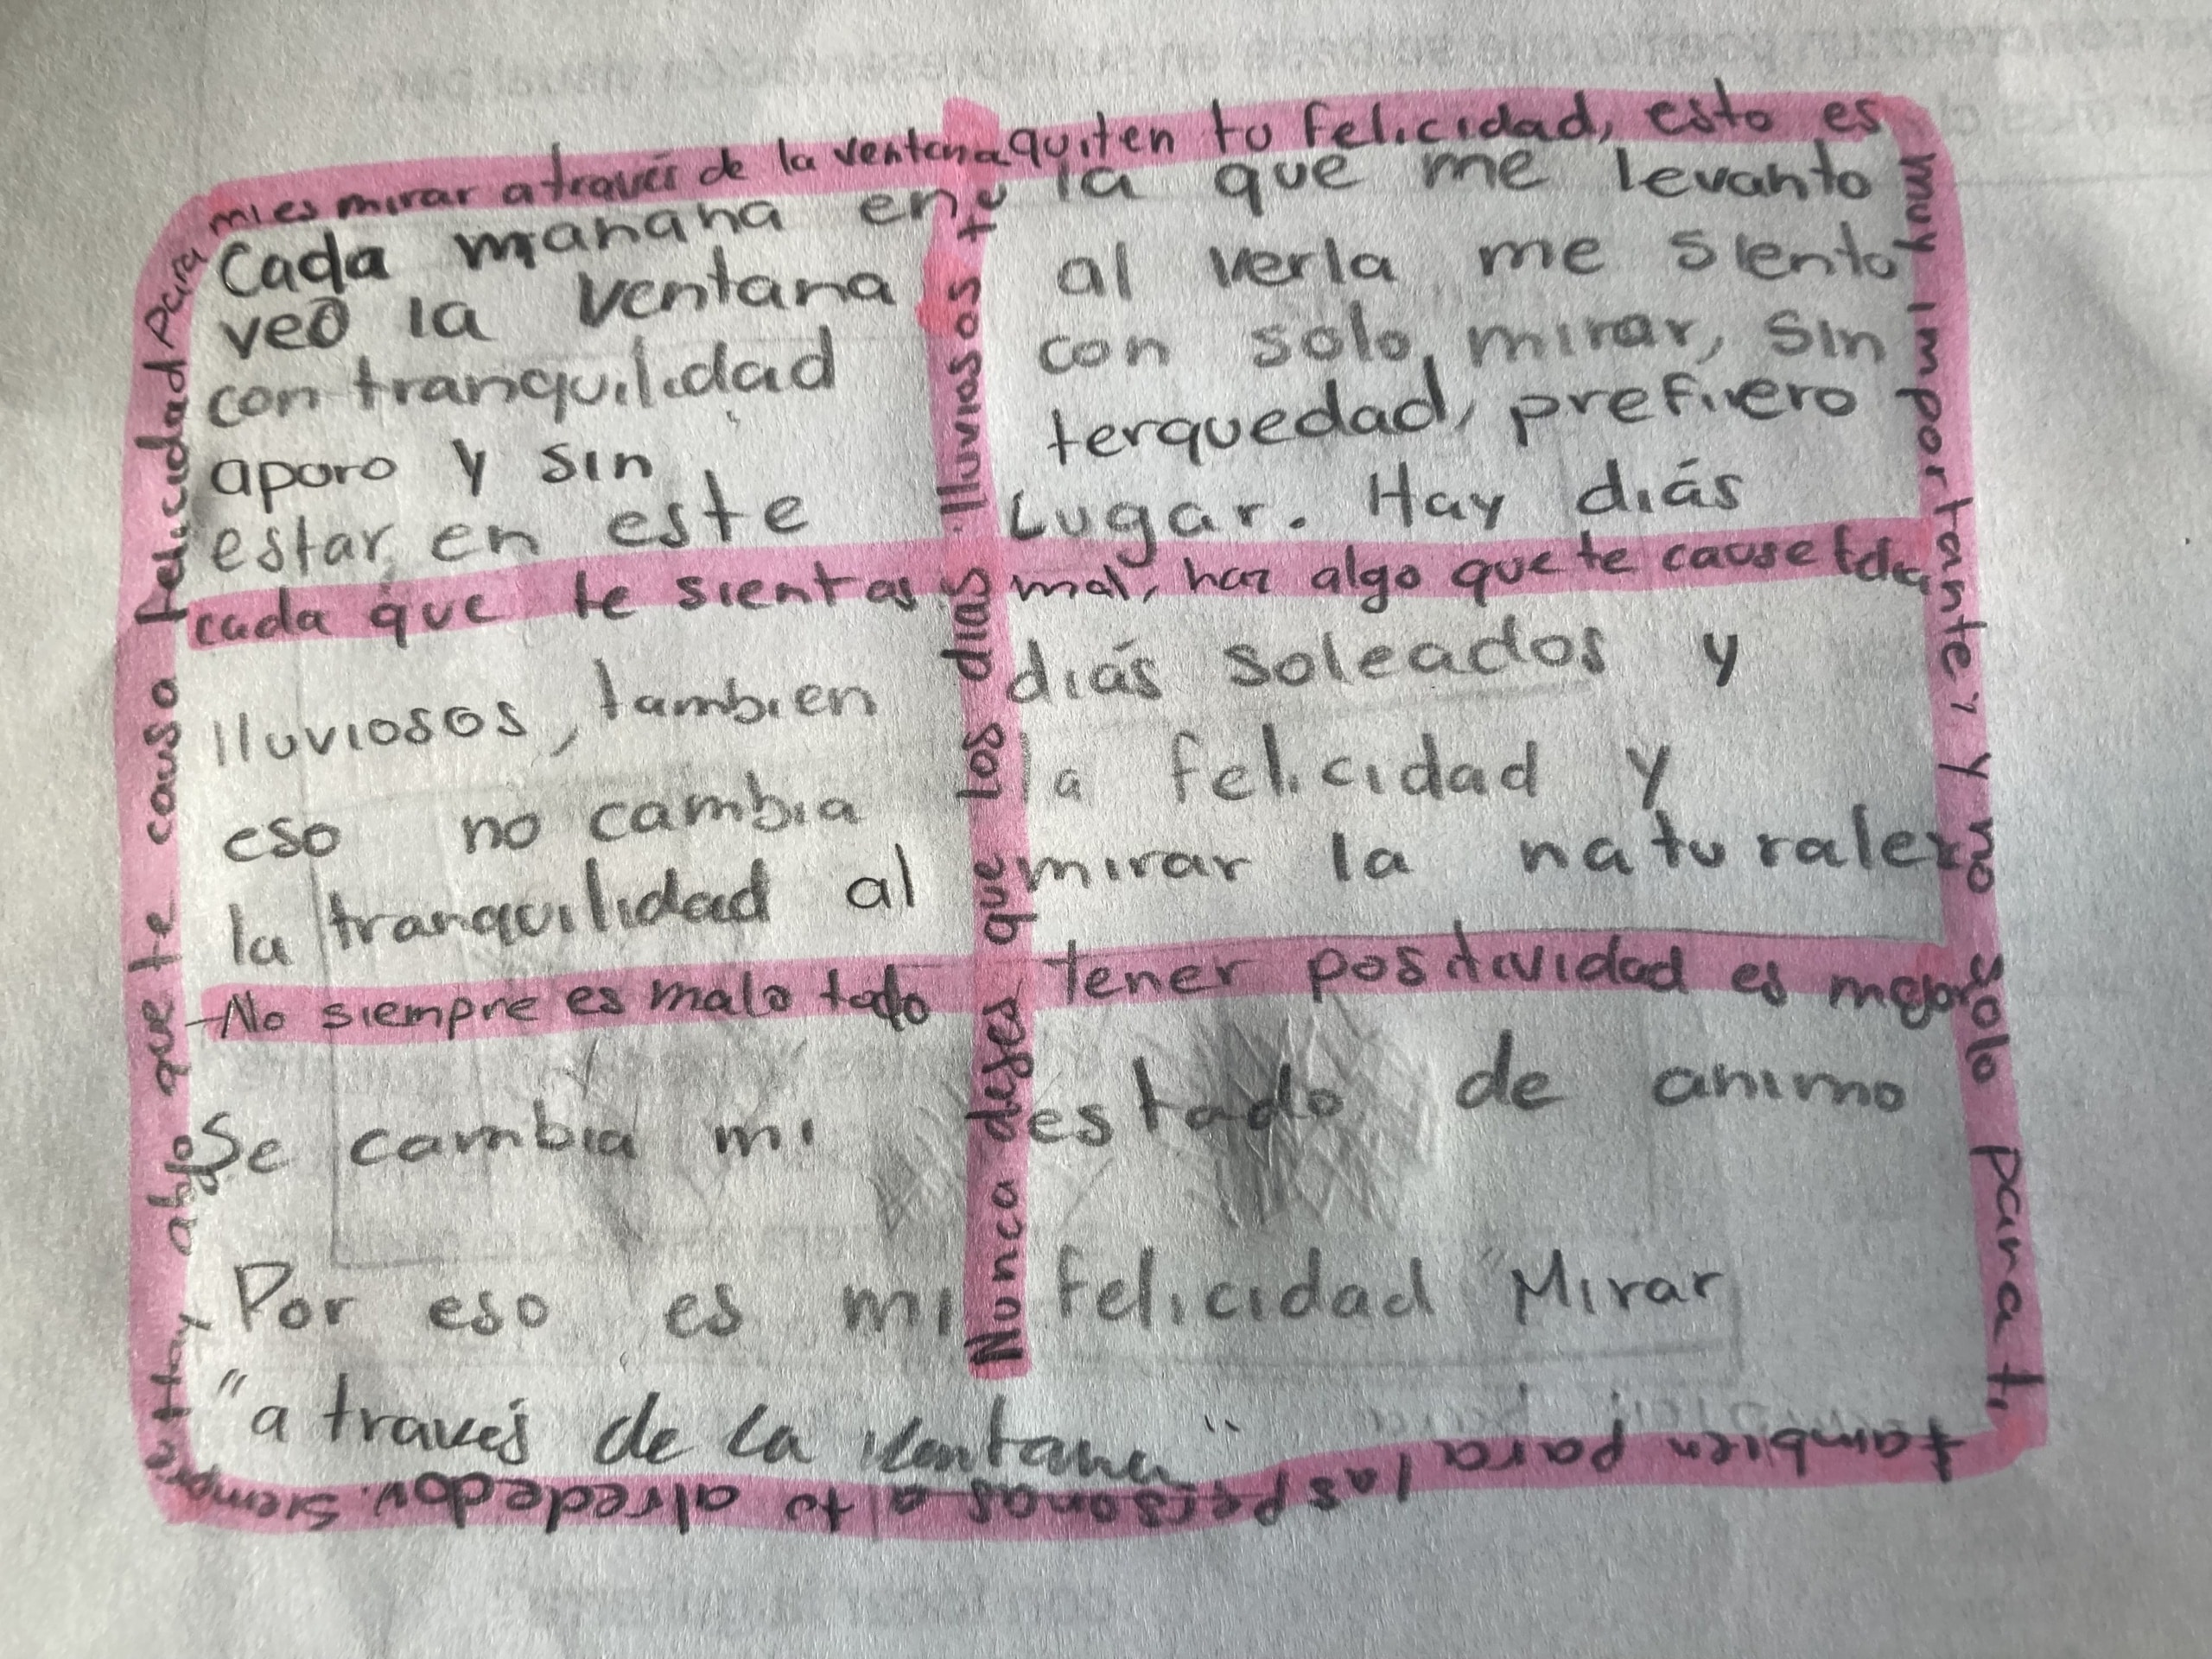 mi es mirar a través de la ventana quiten tu felicidad, esto es
muy importante, y no solo para ti
tambien para las personas a tu alrededor. siempre
Hay algo que te causa felicidad Para
Nunca dejes que los dias lluviosos te
Cada manana en la que me levanto
veo la ventana al verla me siento
con tranquilidad con solo mirar, sin
aporo y sin terquedad, prefiero
estar en este Lugar. Hay diás
cada que te sientas mal, haz algo que te cause
lluviosos, tambien diás soleados y
eso no cambia la felicidad y
la tranquilidad al mirar la naturaleza
No siempre es malo todo tener positividad es mejor
Se cambia mi estado de animo
Por eso es mi felicidad "Mirar
"a través de la ventana"